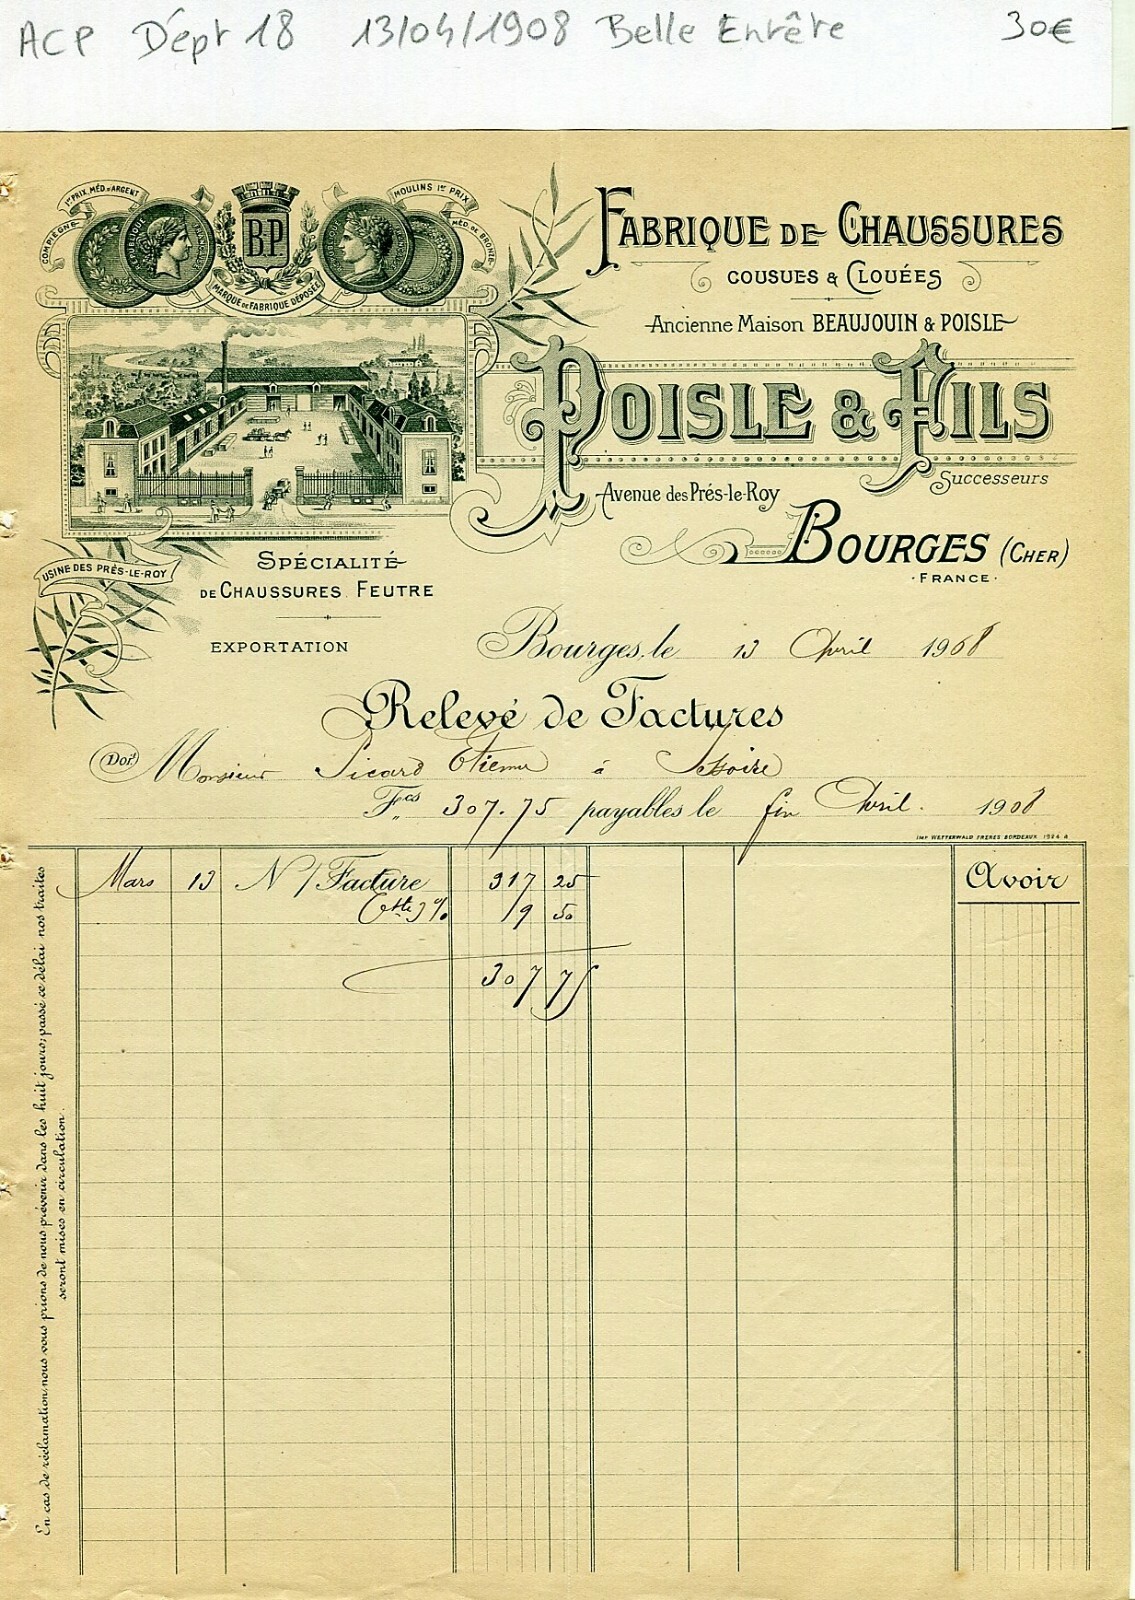 ACP Dépt 18 13/04/1908 Belle Entête 30€
COMPIÈGNE 1er PRIX. MÉD. D'ARGENT
MOULINS 1er PRIX MÉD. DE BRONZE
B.P
MARQUE DE FABRIQUE DÉPOSÉE
FABRIQUE DE CHAUSSURES
COUSUES & CLOUÉES
Ancienne Maison BEAUJOUIN & POISLE
POISLE & FILS
Successeurs
Avenue des Prés-le-Roy
BOURGES (CHER)
·FRANCE·
USINE DES PRÉS-LE-ROY
SPÉCIALITÉ
DE CHAUSSURES FEUTRE
EXPORTATION
Bourges, le 13 Avril 1908
Relevé de Factures
Doit Monsieur Picard Etienne à Issoire
Fcs 307.75 payables le fin Avril. 1908
IMP WETTERWALD FRÈRES BORDEAUX
Avoir
Mars 13 N/ Facture 317 25
Escte 3% 9 50
307 75
En cas de réclamation, nous vous prions de nous prévenir dans les huit jours; passé ce délai nos traites
seront mises en circulation.